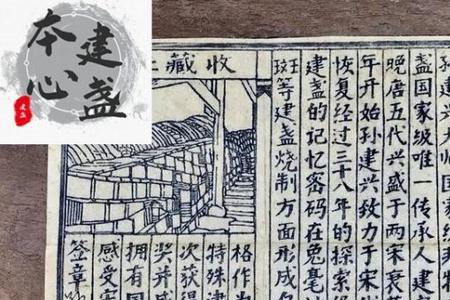 本心
建盏
建盏
盏国家级唯一传承人建
晚唐五代兴盛于两宋衰
年开始孙建兴致力于宋
恢复经过三十八年的探索
建盏的记忆密码在兔毫
斑等建盏烧制方面形成
收藏
格作为
特殊津
次获得
奖并
拥有国
感受宋
签章